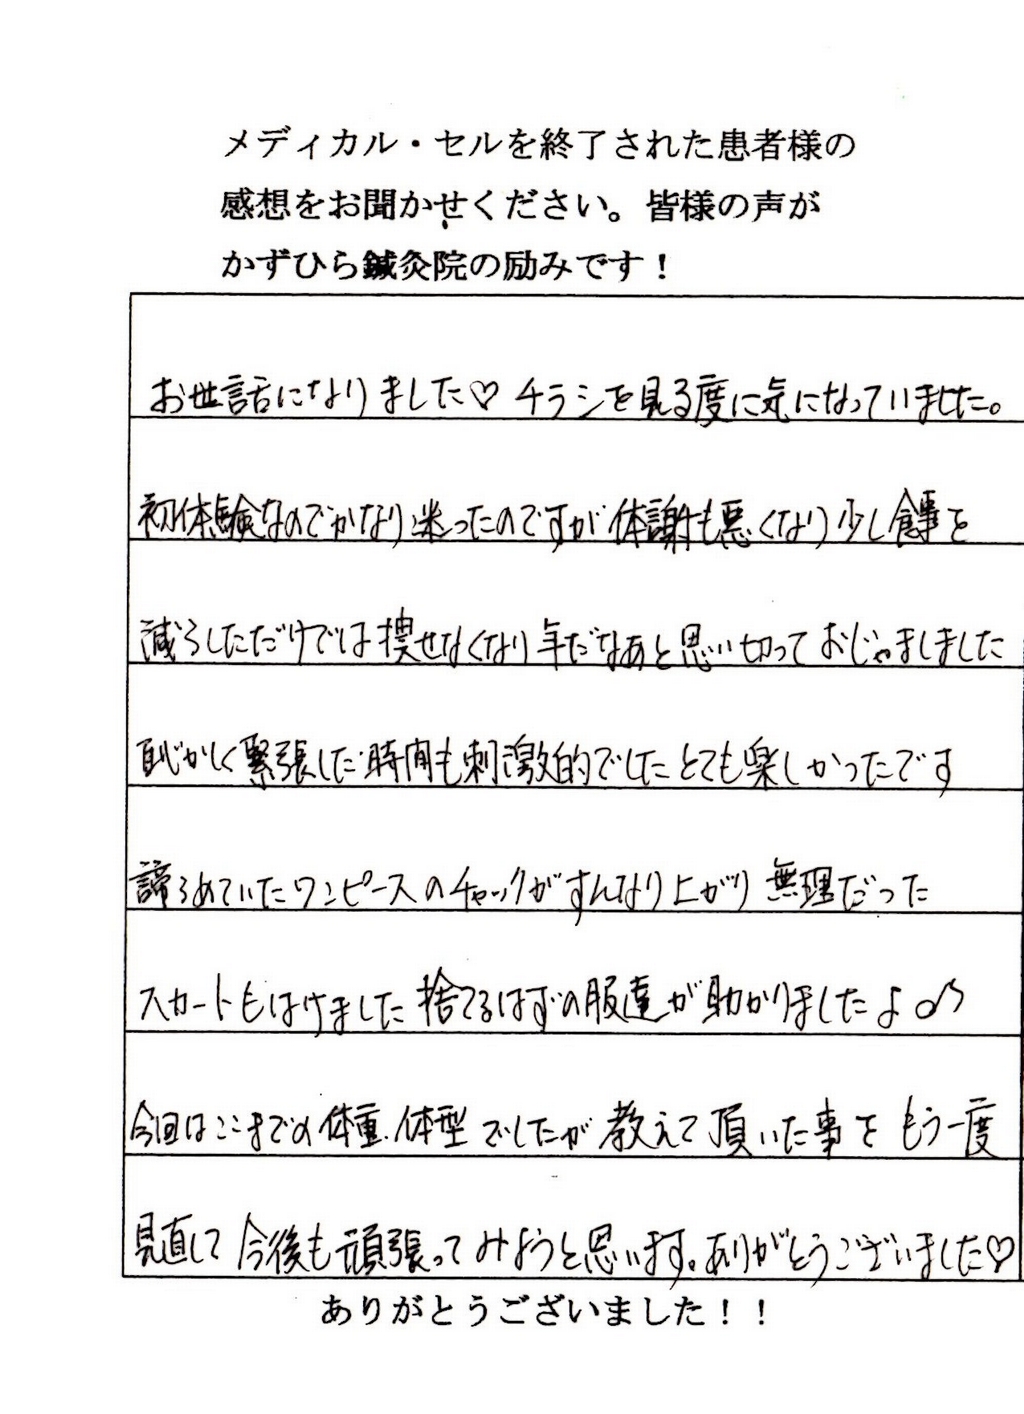 メディカル・セルを終了された患者様の
感想をお聞かせください。皆様の声が
かずひら鍼灸院の励みです！
お世話になりました♡ チラシを見る度に気になっていました。
初体験なのでかなり迷ったのですが体謝も悪くなり少し食事を
減らしただけでは痩せなくなり年だなあと思い切っておじゃましました
恥かしく緊張した時間も刺激的でしたとても楽しかったです
諦らめていたワンピースのチャックがすんなり上がり無理だった
スカートもはけました捨てるはずの服達が助かりましたよ♪
今回はここまでの体重、体型でしたが教えて頂いた事をもう一度
見直して今後も頑張ってみようと思います。ありがとうございました♡
ありがとうございました！！